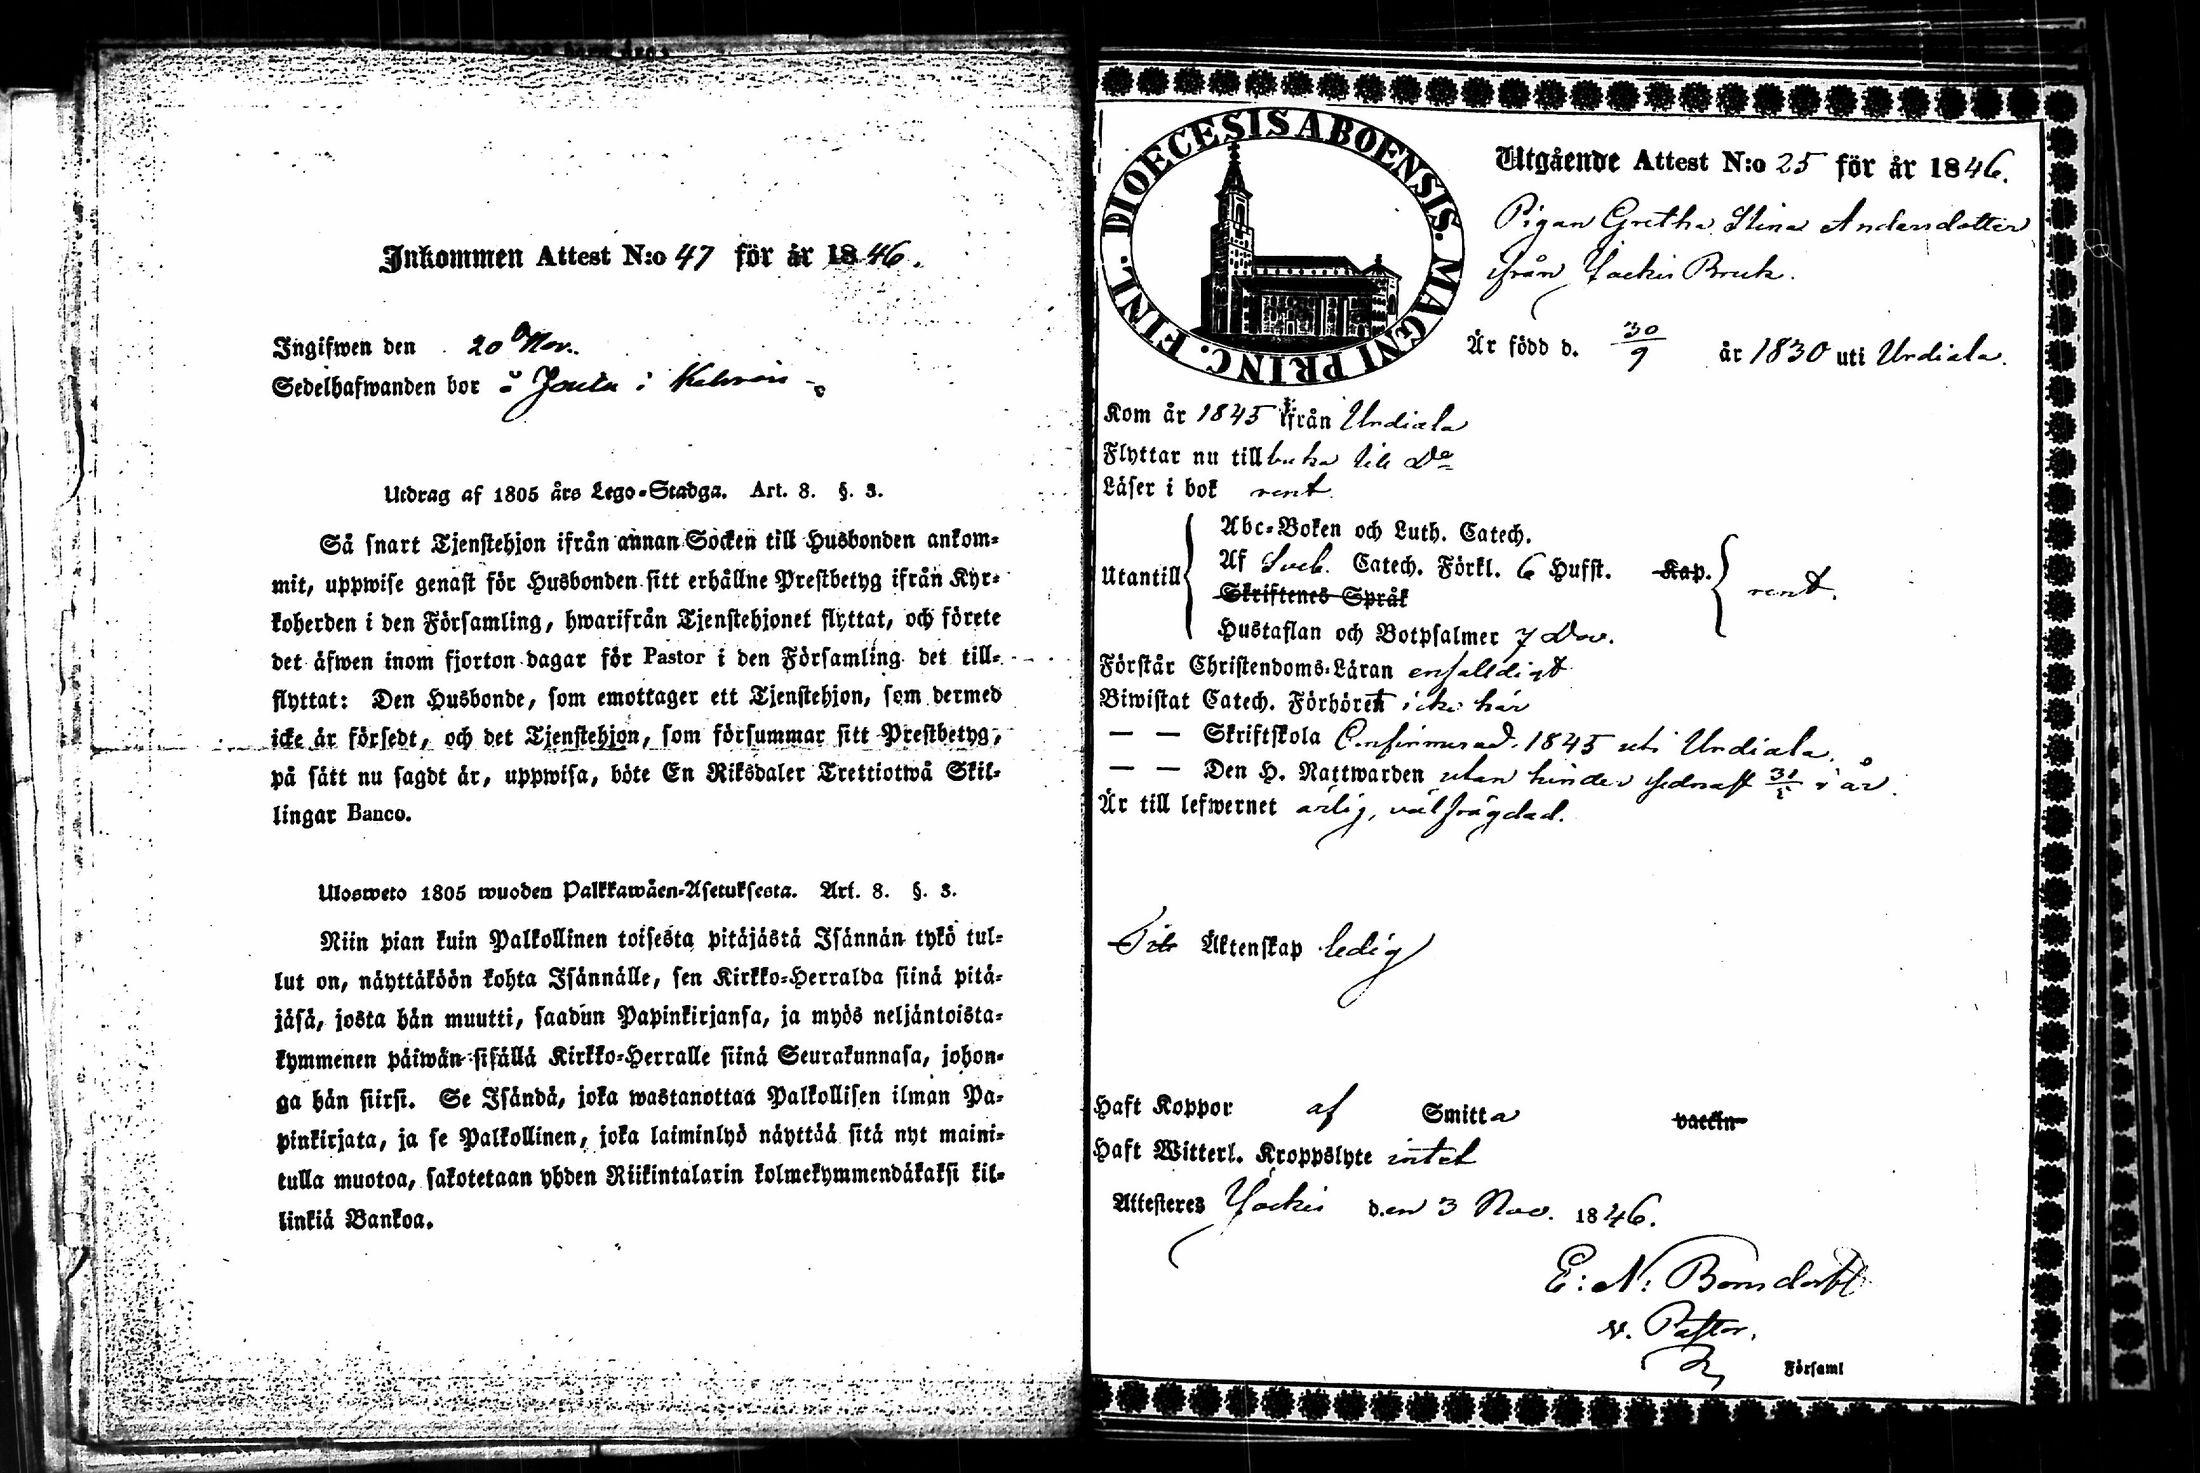 Inkommen Attest N:o 47 för år 1846.
Ingifwen den 20 Nov.
Sedelhafwanden bor å Jouta i
Utdrag af 1805 års Lego-Stadga. Art. 8. §. 3.
Så snart Tjenstehjon ifrån annan Socken till Husbonden ankom-
mit, uppwise genast för Husbonden sitt erhållne Prestbetyg ifrån Kyr-
koherden i den Församling, hwarifrån Tjenstehjonet flyttat, och förete
det äfwen inom fjorton dagar för Pastor i den Församling det till-
flyttat: Den Husbonde, som emottager ett Tjenstehjon, som dermed
icke är försedt, och det Tjenstehjon, som försummar sitt Prestbetyg,
på sätt nu sagdt är, uppwisa, böte En Riksdaler Trettiotwå Skil-
lingar Banco.
Ulosweto 1805 wuoden Palkkawäen-Asetuksesta. Art. 8. §. 3.
Niin pian kuin Palkollinen toisesta pitäjästä Isännän tykö tul-
lut on, näyttäköön kohta Isännälle, sen Kirkko-Herralda siinä pitä-
jäsä, josta hän muutti, saadun Papinkirjansa, ja myös neljäntoista-
kymmenen päiwän sisällä Kirkko-Herralle siinä Seurakunnasa, johon-
ga hän siirsi. Se Isändä, joka wastanottaa Palkollisen ilman Pa-
pinkirjata, ja se Palkollinen, joka laiminlyö näyttää sitä nyt maini-
tulla muotoa, sakotetaan yhden Riikintalarin kolmekymmendäkaksi kil-
linkiä Bankoa.
DIOECESIS ABOENSIS. MAGNI PRINC. FINL.
Utgående Attest N:o 25 för år 1846.
Pigan Gretha Stina Andersdotter
ifrån Jockis Bruk.
Är född d. 30/9 år 1830 uti Urdiala.
Kom år 1845 ifrån Urdiala
Flyttar nu tillbaka till Do
Läser i bok rent.
Utantill
Abc-Boken och Luth. Catech.
Af Sveb. Catech. Förkl. 6 Hufst. Kap.
Skriftenes Språk
Hustaflan och Botpsalmer 7 Dav.
rent.
Förstår Christendoms-Läran enfalldigt
Biwistat Catech. Förhöret icke här
— — Skriftskola Confirmerad 1845 uti Urdiala.
— — Den H. Nattwarden utan hinder sednast i år.
Är till lefwernet ärlig, välfrägdad.
Till Äktenskap ledig
Haft Koppor af Smitta vaccin
Haft Witterl. Kroppslyte intet
Attesteres Jockis den 3 Nov. 1846.
E: N: Bonsdorff
v. Pastor.
Församl